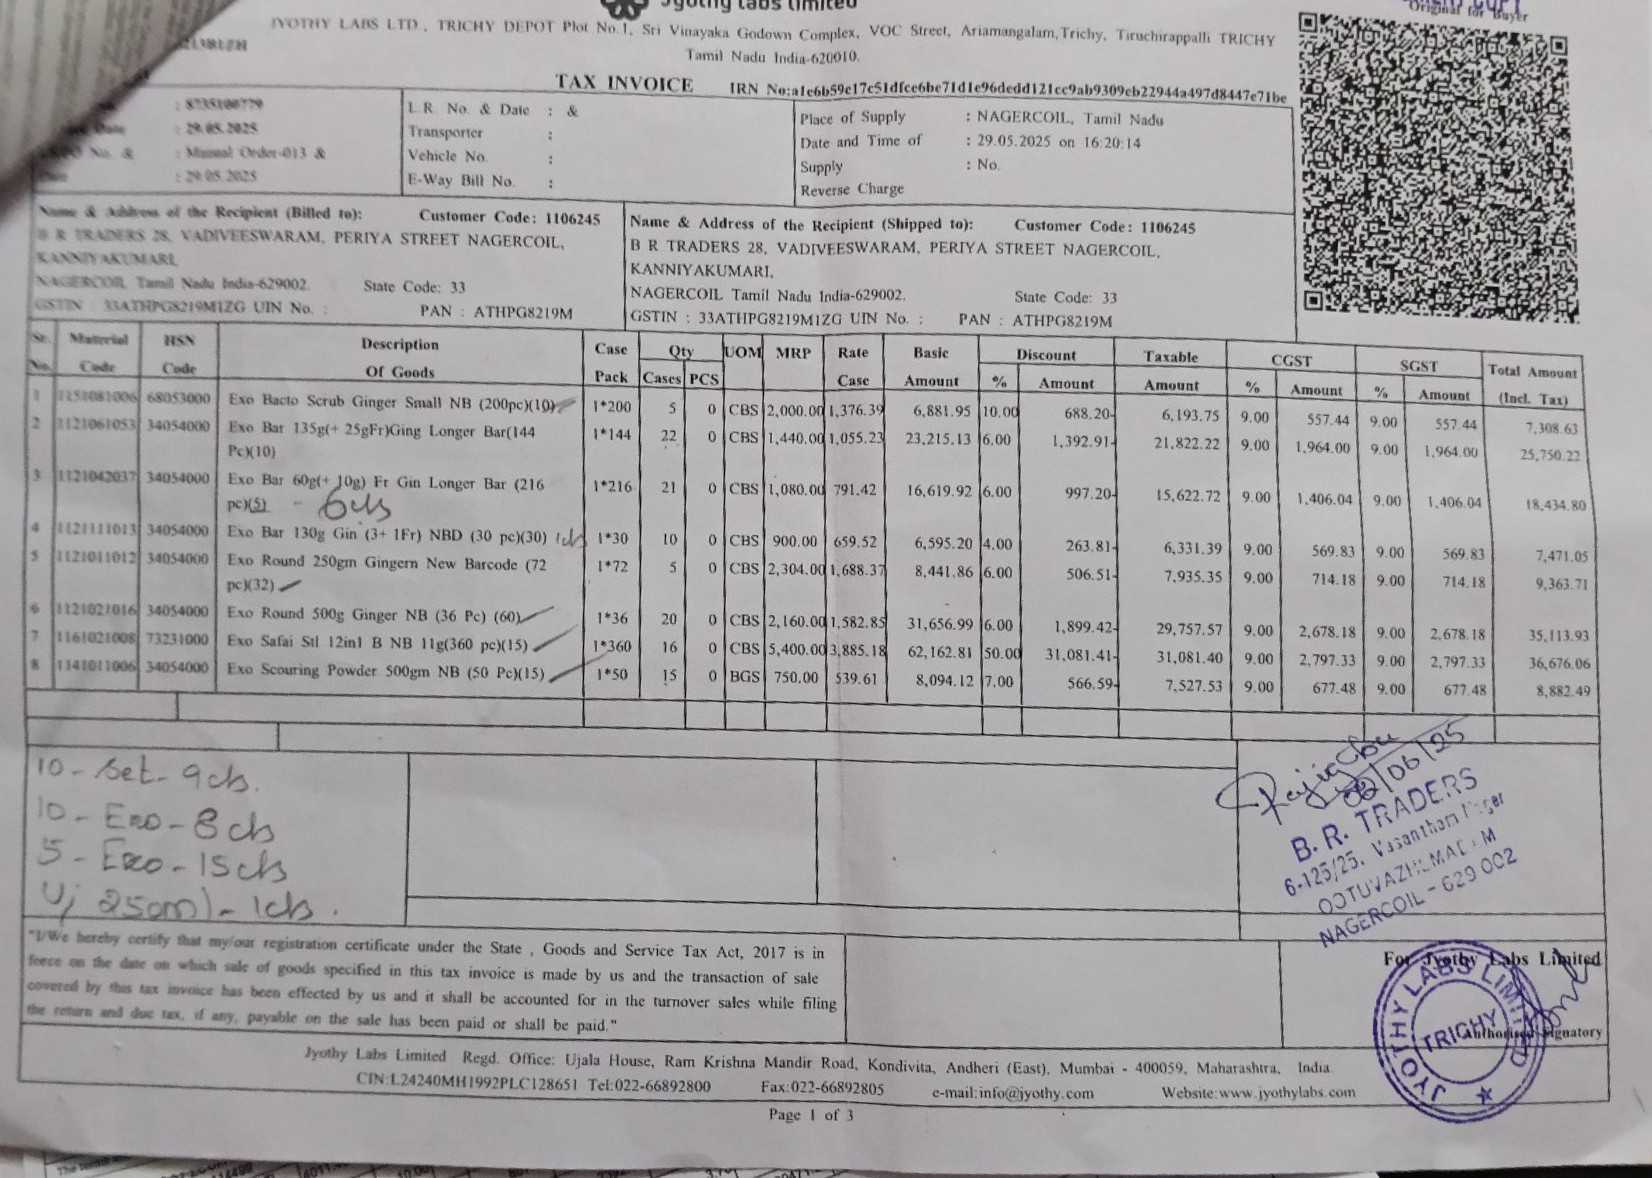 Jyothy Labs Limited
Original for Buyer
JYOTHY LABS LTD , TRICHY DEPOT Plot No.1, Sri Vinayaka Godown Complex, VOC Street, Ariamangalam,Trichy, Tiruchirappalli TRICHY
Tamil Nadu India-620010.
TAX INVOICE IRN No:a1e6b59c17c51dfce6be71d1e96dedd121cc9ab9309eb22944a497d8447e71be
: 8735100779
Date : 29.05.2025
No. & : Manual Order-013 &
: 29.05.2025
L.R. No. & Date : &
Transporter :
Vehicle No. :
E-Way Bill No. :
Place of Supply : NAGERCOIL, Tamil Nadu
Date and Time of : 29.05.2025 on 16:20:14
Supply : No.
Reverse Charge
Name & Address of the Recipient (Billed to): Customer Code: 1106245
B R TRADERS 28, VADIVEESWARAM, PERIYA STREET NAGERCOIL,
KANNIYAKUMARI,
NAGERCOIL Tamil Nadu India-629002. State Code: 33
GSTIN : 33ATHPG8219M1ZG UIN No. : PAN : ATHPG8219M
Name & Address of the Recipient (Shipped to): Customer Code: 1106245
B R TRADERS 28, VADIVEESWARAM, PERIYA STREET NAGERCOIL,
KANNIYAKUMARI,
NAGERCOIL Tamil Nadu India-629002. State Code: 33
GSTIN : 33ATHPG8219M1ZG UIN No. : PAN : ATHPG8219M
Sr. Material HSN Description Case Qty UOM MRP Rate Basic Discount Taxable CGST SGST Total Amount
No. Code Code Of Goods Pack Cases PCS Case Amount % Amount Amount % Amount % Amount (Incl. Tax)
1 1151081006 68053000 Exo Bacto Scrub Ginger Small NB (200pc)(10) 1*200 5 0 CBS 2,000.00 1,376.39 6,881.95 10.00 688.20- 6,193.75 9.00 557.44 9.00 557.44 7,308.63
2 1121061053 34054000 Exo Bar 135g(+ 25gFr)Ging Longer Bar(144 1*144 22 0 CBS 1,440.00 1,055.23 23,215.13 6.00 1,392.91- 21,822.22 9.00 1,964.00 9.00 1,964.00 25,750.22
Pc)(10)
3 1121042037 34054000 Exo Bar 60g(+ 10g) Fr Gin Longer Bar (216 1*216 21 0 CBS 1,080.00 791.42 16,619.92 6.00 997.20- 15,622.72 9.00 1,406.04 9.00 1,406.04 18,434.80
pc)(5) - 6cb
4 1121111013 34054000 Exo Bar 130g Gin (3+ 1Fr) NBD (30 pc)(30) 1cb 1*30 10 0 CBS 900.00 659.52 6,595.20 4.00 263.81- 6,331.39 9.00 569.83 9.00 569.83 7,471.05
5 1121011012 34054000 Exo Round 250gm Gingern New Barcode (72 1*72 5 0 CBS 2,304.00 1,688.37 8,441.86 6.00 506.51- 7,935.35 9.00 714.18 9.00 714.18 9,363.71
pc)(32)
6 1121021016 34054000 Exo Round 500g Ginger NB (36 Pc) (60) 1*36 20 0 CBS 2,160.00 1,582.85 31,656.99 6.00 1,899.42- 29,757.57 9.00 2,678.18 9.00 2,678.18 35,113.93
7 1161021008 73231000 Exo Safai Stl 12in1 B NB 11g(360 pc)(15) 1*360 16 0 CBS 5,400.00 3,885.18 62,162.81 50.00 31,081.41- 31,081.40 9.00 2,797.33 9.00 2,797.33 36,676.06
8 1141011006 34054000 Exo Scouring Powder 500gm NB (50 Pc)(15) 1*50 15 0 BGS 750.00 539.61 8,094.12 7.00 566.59- 7,527.53 9.00 677.48 9.00 677.48 8,882.49
10 - Set - 9cb.
10 - Exo - 8cb
5 - Exo - 15cb
Uj 250ml - 1cb.
02/06/25
B. R. TRADERS
6-125/25, Vasantham
NAGERCOIL - 629 002
"I/We hereby certify that my/our registration certificate under the State , Goods and Service Tax Act, 2017 is in
force on the date on which sale of goods specified in this tax invoice is made by us and the transaction of sale
covered by this tax invoice has been effected by us and it shall be accounted for in the turnover sales while filing
the return and due tax, if any, payable on the sale has been paid or shall be paid."
For Jyothy Labs Limited
JYOTHY LABS LIMITED
TRICHY
Authorised Signatory
Jyothy Labs Limited Regd. Office: Ujala House, Ram Krishna Mandir Road, Kondivita, Andheri (East), Mumbai - 400059, Maharashtra, India
CIN:L24240MH1992PLC128651 Tel:022-66892800 Fax:022-66892805 e-mail:info@jyothy.com Website:www.jyothylabs.com
Page 1 of 3